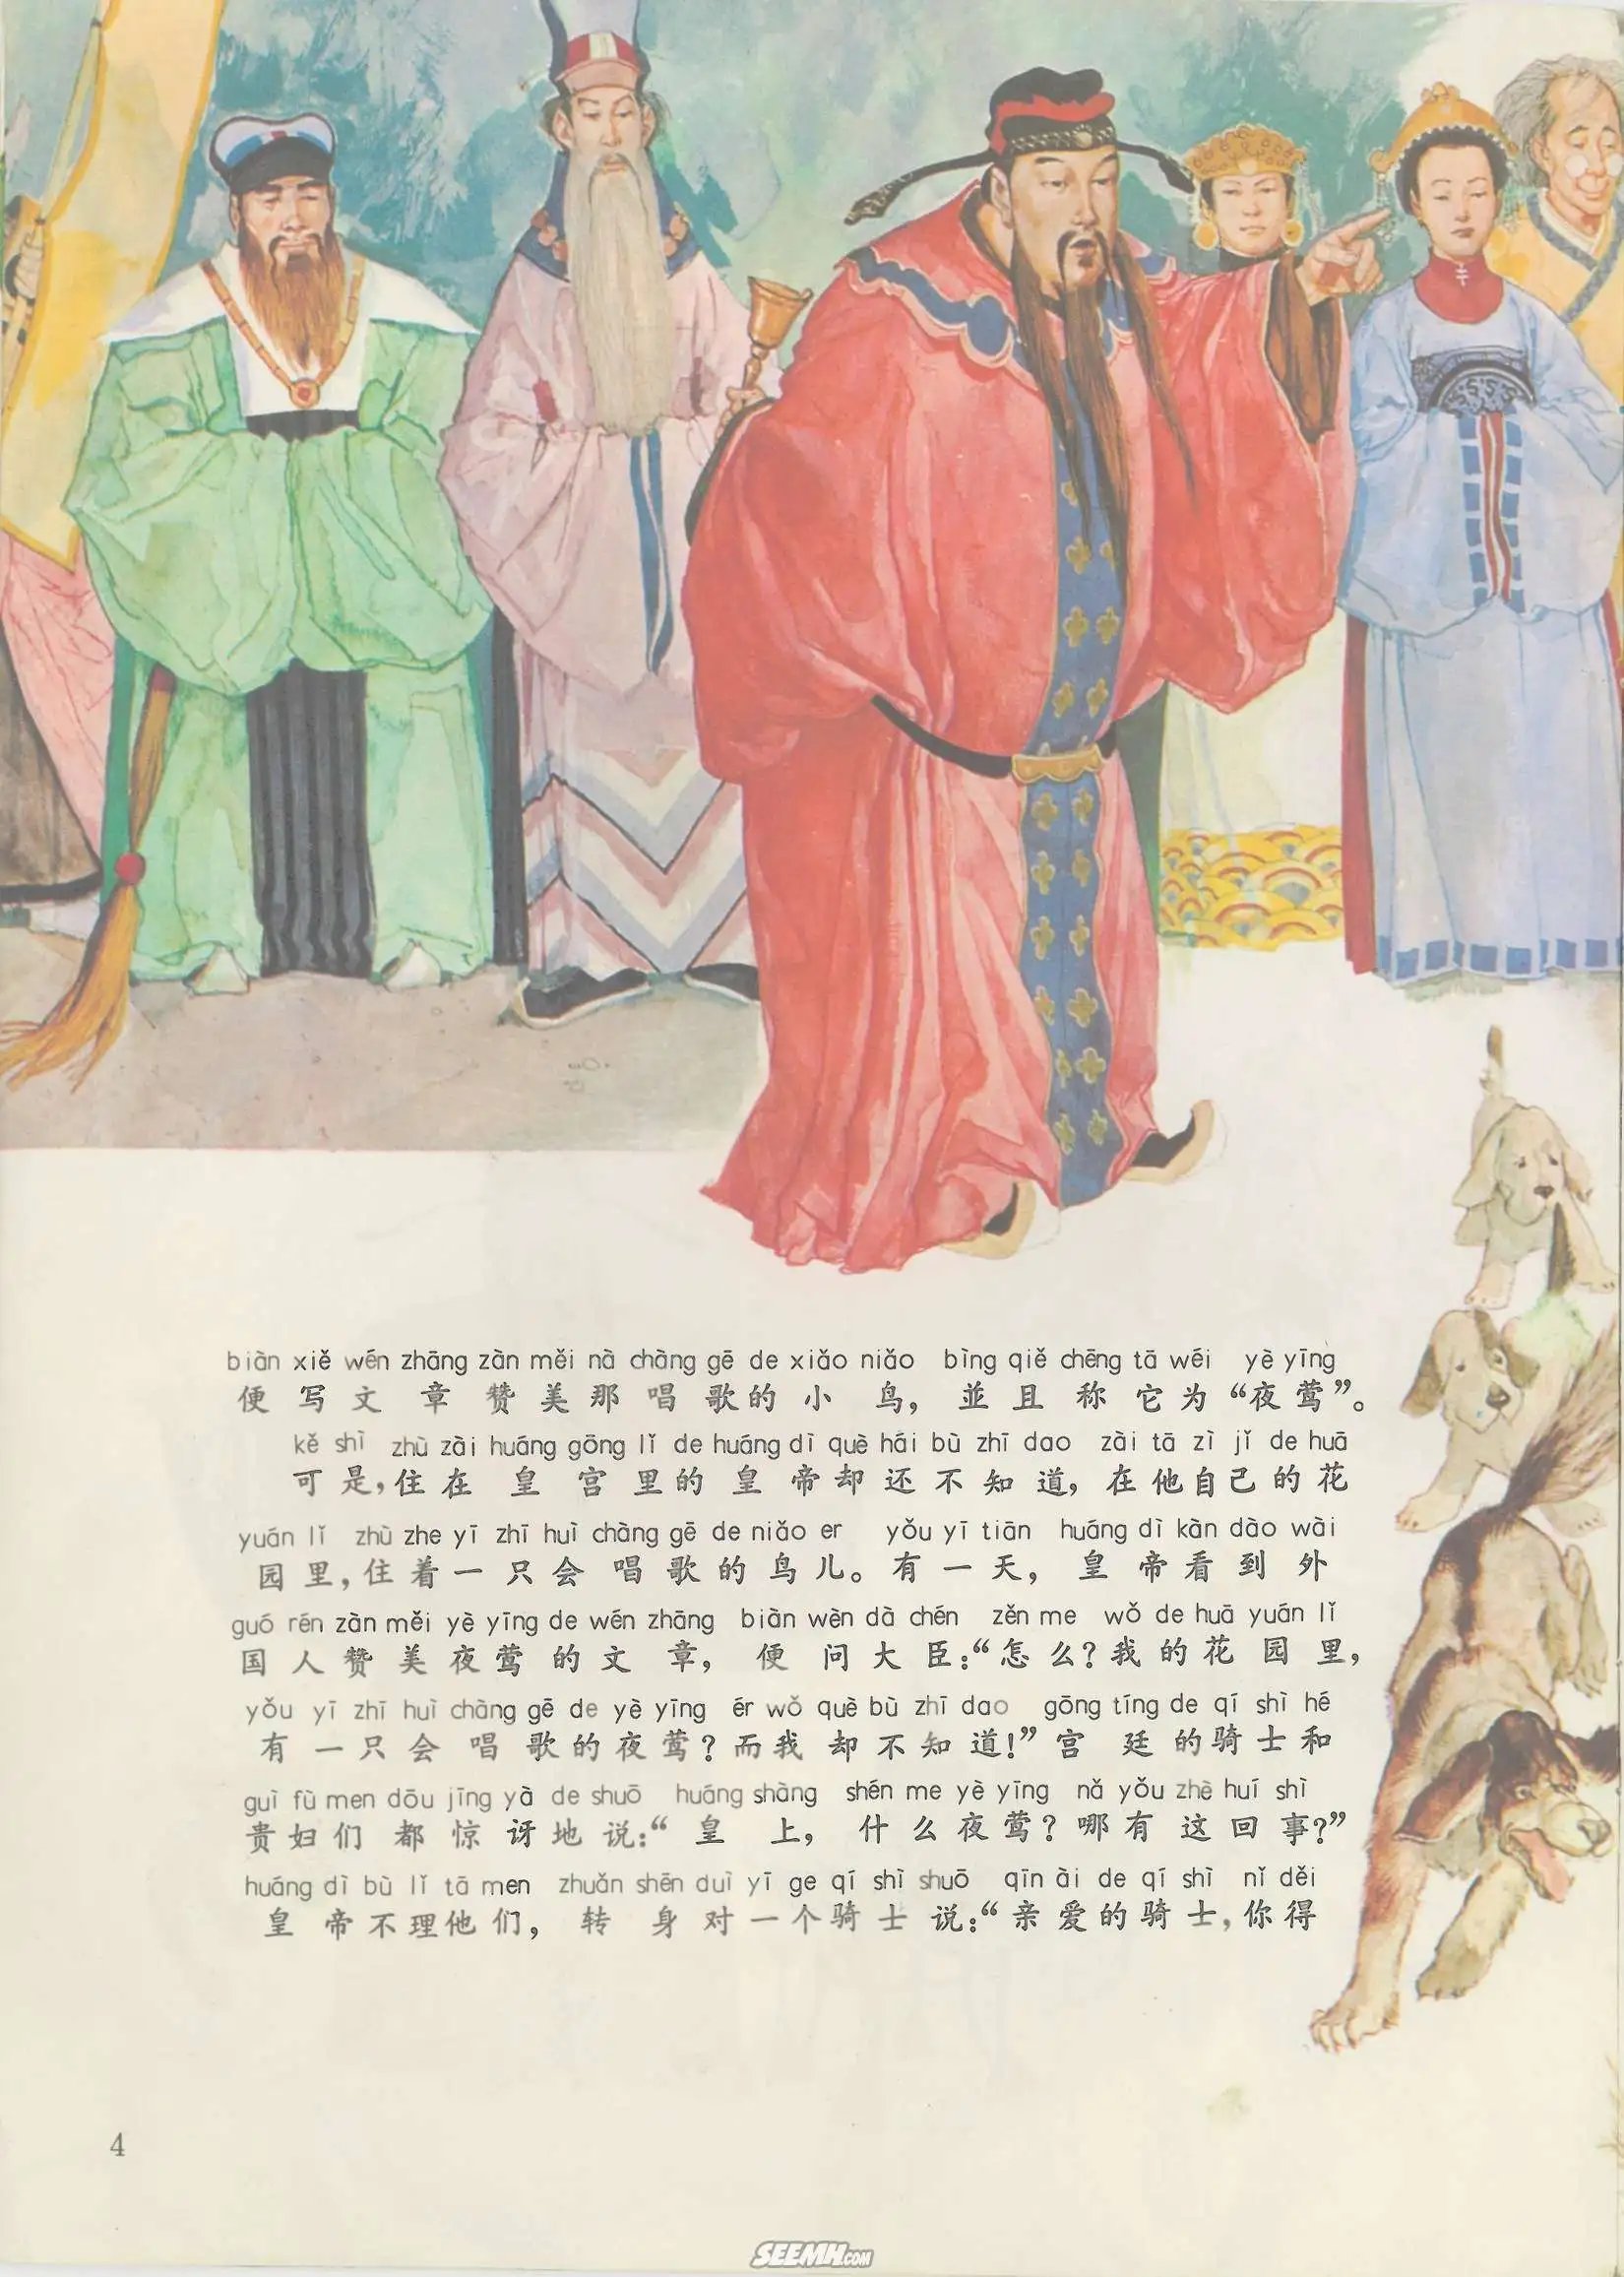 biàn xiě wén zhāng zàn měi nà chàng gē de xiǎo niǎo bìng qiě chēng tā wéi yè yīng
便写文章赞美那唱歌的小鸟，並且称它为“夜莺”。
kě shì zhù zài huáng gōng lǐ de huáng dì què hái bù zhī dao zài tā zì jǐ de huā
可是，住在皇宫里的皇帝却还不知道，在他自己的花
yuán lǐ zhù zhe yī zhī huì chàng gē de niǎo er yǒu yī tiān huáng dì kàn dào wài
园里，住着一只会唱歌的鸟儿。有一天，皇帝看到外
guó rén zàn měi yè yīng de wén zhāng biàn wèn dà chén zěn me wǒ de huā yuán lǐ
国人赞美夜莺的文章，便问大臣：“怎么？我的花园里，
yǒu yī zhī huì chàng gē de yè yīng ér wǒ què bù zhī dao gōng tíng de qí shì hé
有一只会唱歌的夜莺？而我却不知道！”宫廷的骑士和
guì fù men dōu jīng yà de shuō huáng shàng shén me yè yīng nǎ yǒu zhè huí shì
贵妇们都惊讶地说：“皇上，什么夜莺？哪有这回事？”
huáng dì bù lǐ tā men zhuǎn shēn duì yī ge qí shì shuō qīn ài de qí shì nǐ děi
皇帝不理他们，转身对一个骑士说：“亲爱的骑士，你得
4
SEEMH.COM